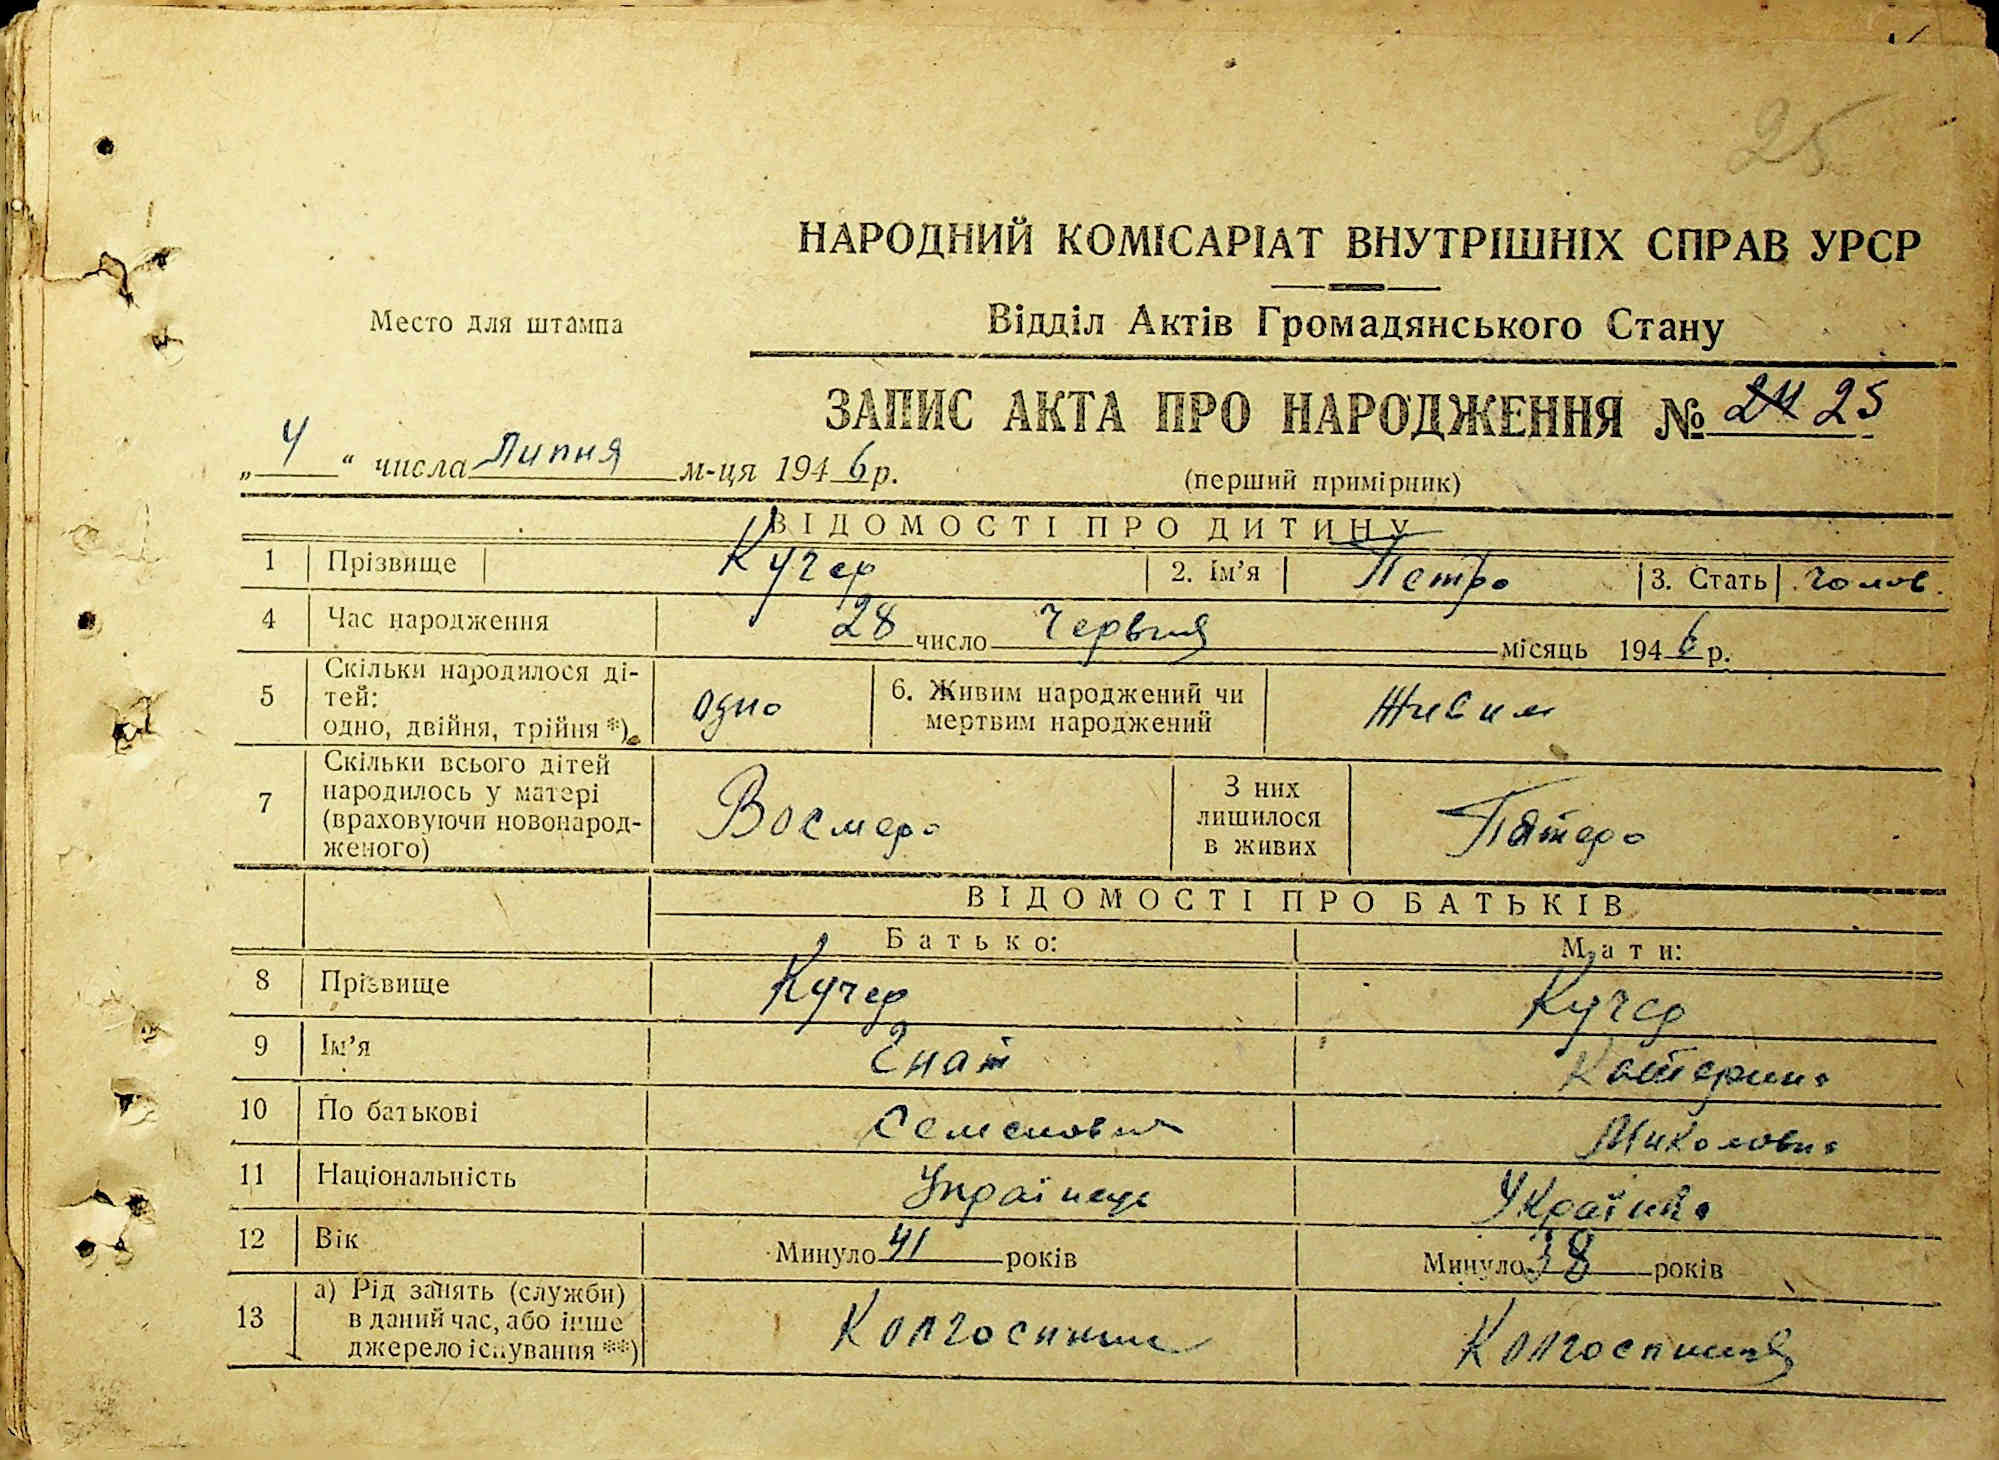 25
НАРОДНИЙ КОМІСАРІАТ ВНУТРІШНІХ СПРАВ УРСР
Место для штампа
Відділ Актів Громадянського Стану
ЗАПИС АКТА ПРО НАРОДЖЕННЯ № 24 25
„ 4 “ числа Липня м-ця 1946 р.
(перший примірник)
ВІДОМОСТІ ПРО ДИТИНУ
1 Прізвище Кучер 2. Ім’я Петро 3. Стать чолов.
4 Час народження 28 число Червня місяць 1946 р.
5 Скільки народилося ді-
тей:
одно, двійня, трійня *) одно 6. Живим народжений чи
мертвим народжений Живим
7 Скільки всього дітей
народилось у матері
(враховуючи новонарод-
женого) Восмеро З них
лишилося
в живих Пятеро
ВІДОМОСТІ ПРО БАТЬКІВ
Батько: Мати:
8 Прізвище Кучер Кучер
9 Ім’я Гнат Катерина
10 По батькові Семенович Миколовна
11 Національність Українець Українка
12 Вік Минуло 41 років Минуло 38 років
13 а) Рід занять (служби)
в даний час, або інше
джерело існування **) Колгоспник Колгоспниця